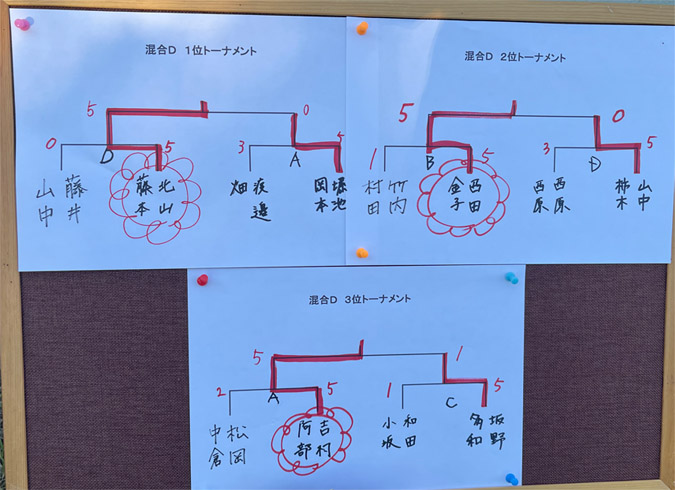 混合D 1位トーナメント
5 0
0 D 5 3 A 5
山中 藤井 藤本 北山 畑 渡邉 岡本 堀池
混合D 2位トーナメント
5 0
1 B 5 3 D 5
村田 竹内 金子 西田 西原 西原 柿木 山中
混合D 3位トーナメント
5 1
2 A 5 1 C 5
中倉 松岡 阿部 吉村 小坂 和田 角和 坂野